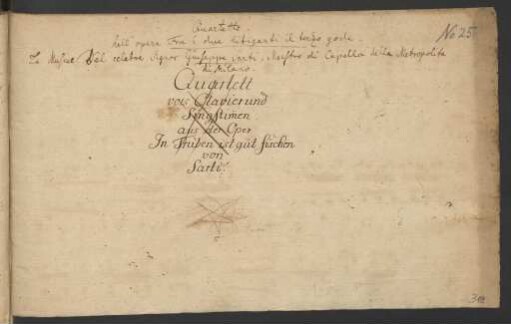 Quartetto
No 25
dell'opera Fra i due litiganti il terzo gode.
La Musica del celebre Signor Giuseppe Sarti, Maestro di Capella della Metropolita
di Milano.
Quartett
vors Clavier und
Singstimen
aus der Oper
In Trüben ist gut fischen
von
Sarti.